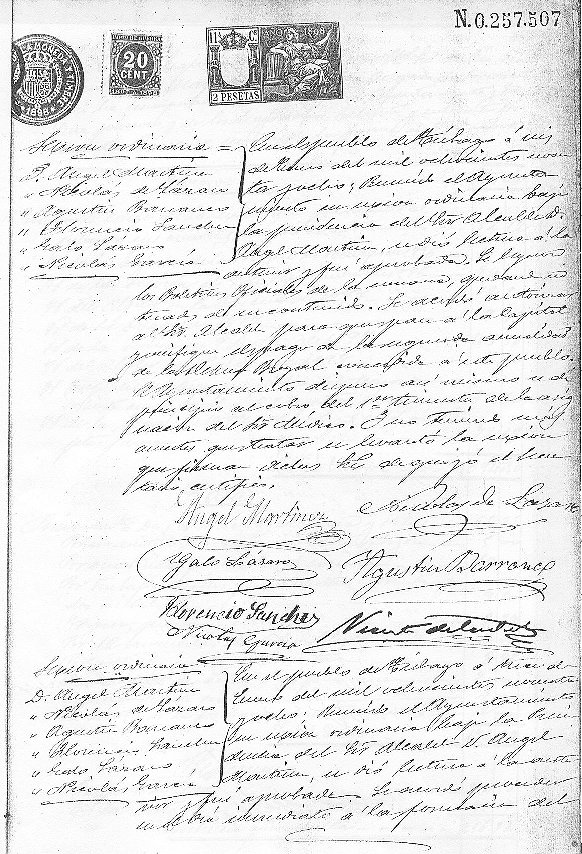 N.0.257.507
20
CENT
11ª C.
2 PESETAS
Sesion ordinaria =
D. Angel Martinez
" Nicolás de Lázaro
" Agustin Barranco
" Florencio Sanchez
" Galo Lázaro
" Nicolás García
En el pueblo de á seis
de Enero del mil ochocientos noven
ta y ocho; Reunido el Ayunta
miento en sesion ordinaria bajo
la presidencia del Sr. Alcalde D.
Angel Martinez, se dió lectura á la
anterior y fué aprobada. Se leyeron
los Boletines Oficiales de la semana, quedando en
terados de su contenido. Se acordó autorizar
al Sr. Alcalde para que pase á la Capital
y verifique el pago de la segunda anualidad
de la concedida á este pueblo.
El Ayuntamiento dispuso asi mismo se dé
principio al cobro del 1er semestre de la asig
nacion del Sr. Médico. Y no teniendo más
asuntos que tratar se levantó la sesion
que firman dichos de que yó el Secre
tario, certifico.
Angel Martinez Nicolas de Lazaro
Galo Lázaro Agustin Barranco
Florencio Sanchez
Nicolas Garcia Vicente
Sesion ordinaria
D. Angel Martinez
" Nicolás de Lázaro
" Agustin Barranco
" Florencio Sanchez
" Galo Lázaro
" Nicolás García
En el pueblo de á trece de
Enero del mil ochocientos noventa
y ocho; Reunido el Ayuntamiento
en sesion ordinaria bajo la Presi
dencia del Sr. Alcalde D. Angel
Martinez, se dió lectura á la ante
rior y fué aprobada. Se acordó proceder
inmediato á la formacion del